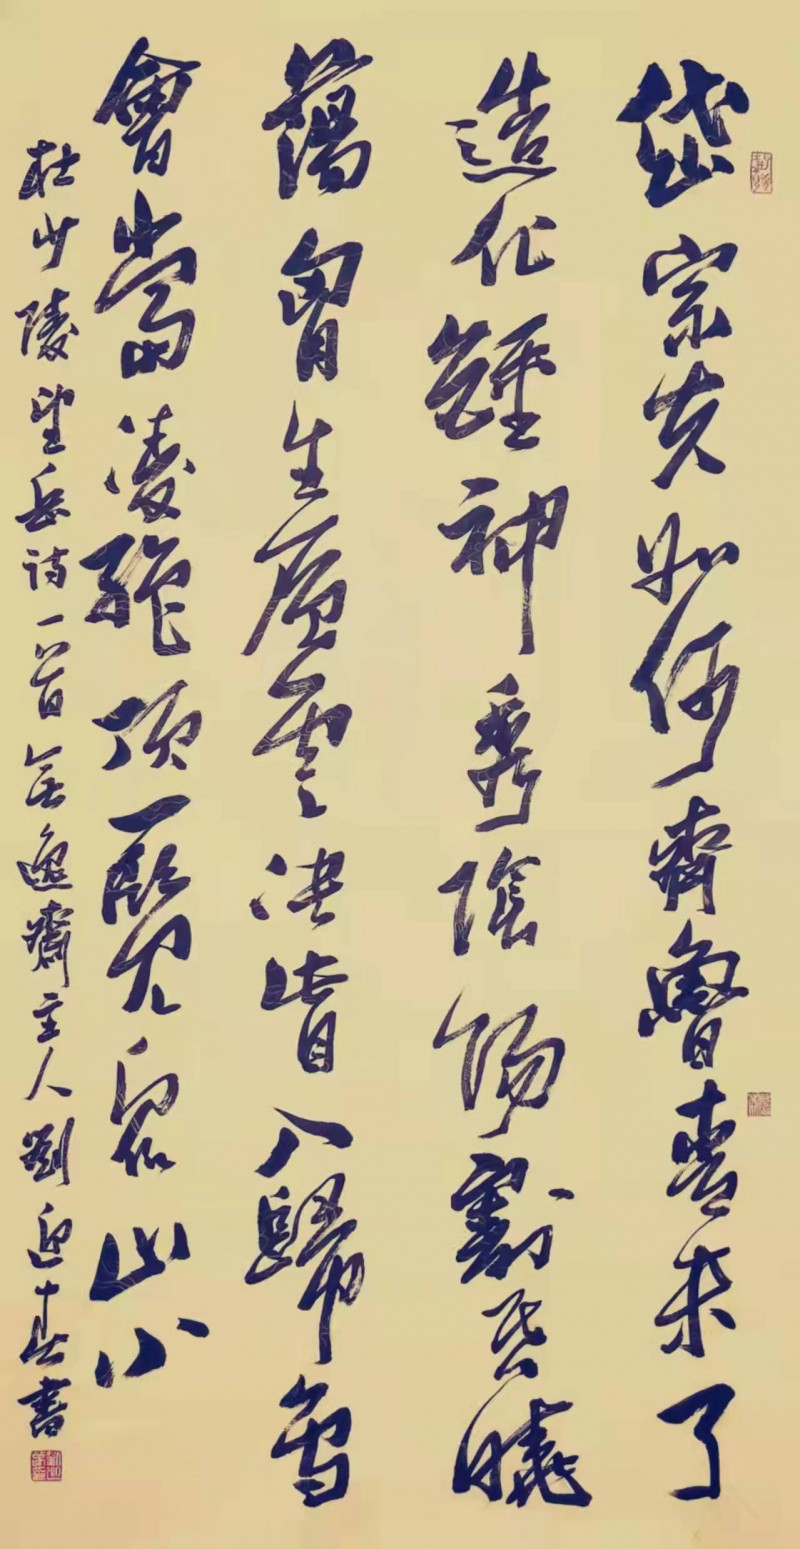 岱宗夫如何齊魯青未了
造化鍾神秀陰陽割昏曉
蕩胷生層雲決眥入歸鳥
會當凌絶頂一覽衆山小
杜少陵望岳诗一首無逸齋主人劉迎春書